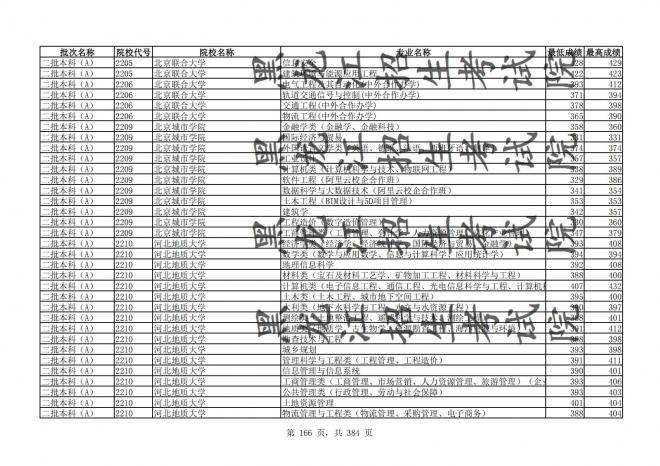 批次名称 院校代号 院校名称 专业名称 最低成绩 最高成绩
二批本科（A） 2205 北京联合大学 428 429
二批本科（A） 2205 北京联合大学 422 423
二批本科（A） 2206 北京联合大学 393 412
二批本科（A） 2206 北京联合大学 轨道交通信号与控制(中外合作办学) 371 394
二批本科（A） 2206 北京联合大学 交通工程(中外合作办学) 378 398
二批本科（A） 2206 北京联合大学 物流工程(中外合作办学) 365 390
二批本科（A） 2209 北京城市学院 金融学类（金融学、金融科技） 358 360
二批本科（A） 2209 北京城市学院 331
二批本科（A） 2209 北京城市学院 374
二批本科（A） 2209 北京城市学院 357
二批本科（A） 2209 北京城市学院 计算机类（计算机科学与技术、物联网工程） 338 389
二批本科（A） 2209 北京城市学院 软件工程（阿里云校企合作班） 329 386
二批本科（A） 2209 北京城市学院 数据科学与大数据技术（阿里云校企合作班） 341 354
二批本科（A） 2209 北京城市学院 土木工程（BIM设计与5D项目管理） 353 352
二批本科（A） 2209 北京城市学院 建筑学 342 357
二批本科（A） 2209 北京城市学院 360
二批本科（A） 2209 北京城市学院 379
二批本科（A） 2210 河北地质大学 393 408
二批本科（A） 2210 河北地质大学 394
二批本科（A） 2210 河北地质大学 地理信息科学 392 408
二批本科（A） 2210 河北地质大学 材料类（宝石及材料工艺学、矿物加工工程、材料科学与工程） 388 400
二批本科（A） 2210 河北地质大学 计算机类（电子信息工程、通信工程、光电信息科学与工程、计算机 407 432
二批本科（A） 2210 河北地质大学 土木类（土木工程、城市地下空间工程） 395 400
二批本科（A） 2210 河北地质大学 397
二批本科（A） 2210 河北地质大学 401
二批本科（A） 2210 河北地质大学 412
二批本科（A） 2210 河北地质大学 勘查技术与工程 388 398
二批本科（A） 2210 河北地质大学 城乡规划 393 398
二批本科（A） 2210 河北地质大学 管理科学与工程类（工程管理、工程造价） 391 411
二批本科（A） 2210 河北地质大学 信息管理与信息系统 390 401
二批本科（A） 2210 河北地质大学 工商管理类（工商管理、市场营销、人力资源管理、旅游管理）（企业 393 406
二批本科（A） 2210 河北地质大学 公共管理类（行政管理、劳动与社会保障） 393 403
二批本科（A） 2210 河北地质大学 土地资源管理 401 404
二批本科（A） 2210 河北地质大学 物流管理与工程类（物流管理、采购管理、电子商务） 388 404
黑龙江招生考试院
黑龙江招生考试院
第 166 页，共 384 页